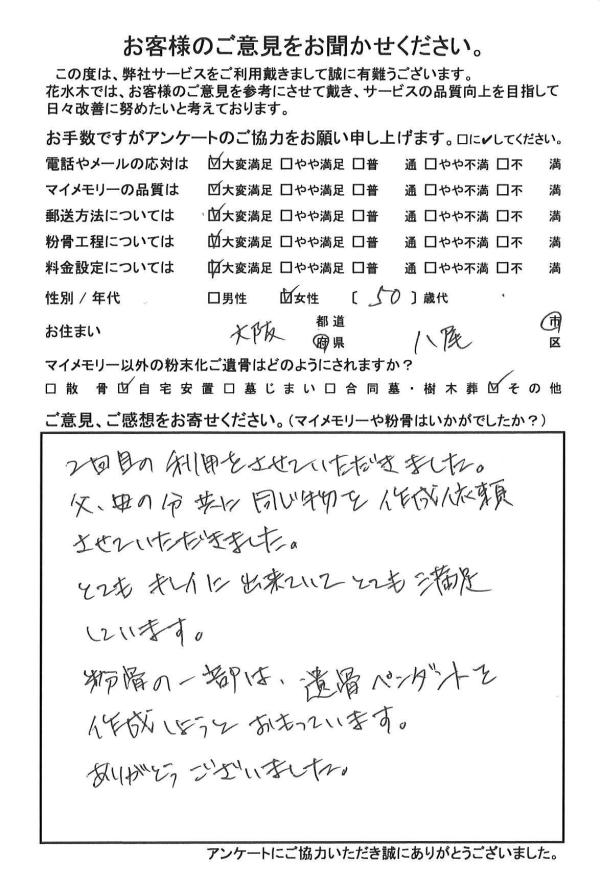 お客様のご意見をお聞かせください。
この度は、弊社サービスをご利用戴きまして誠に有難うございます。
花水木では、お客様のご意見を参考にさせて戴き、サービスの品質向上を目指して
日々改善に努めたいと考えております。
お手数ですがアンケートのご協力をお願い申し上げます。□に✔してください。
電話やメールの応対は ☑大変満足 □やや満足 □普 通 □やや不満 □不 満
マイメモリーの品質は ☑大変満足 □やや満足 □普 通 □やや不満 □不 満
郵送方法については ☑大変満足 □やや満足 □普 通 □やや不満 □不 満
粉骨工程については ☑大変満足 □やや満足 □普 通 □やや不満 □不 満
料金設定については ☑大変満足 □やや満足 □普 通 □やや不満 □不 満
性別/年代 □男性 ☑女性 〔 50 〕歳代
お住まい 大阪 都道府県 八尾 市区
マイメモリー以外の粉末化ご遺骨はどのようにされますか？
□散 骨 ☑自宅安置 □墓じまい □合同墓・樹木葬 ☑その他
ご意見、ご感想をお寄せください。(マイメモリーや粉骨はいかがでしたか？)
2回目の利用をさせていただきました。
父、母の分共に同じ物を作成依頼
させていただきました。
とてもキレイに出来ていてとても満足
しています。
粉骨の一部は、遺骨ペンダントを
作成しようとおもっています。
ありがとうございました。
アンケートにご協力いただき誠にありがとうございました。